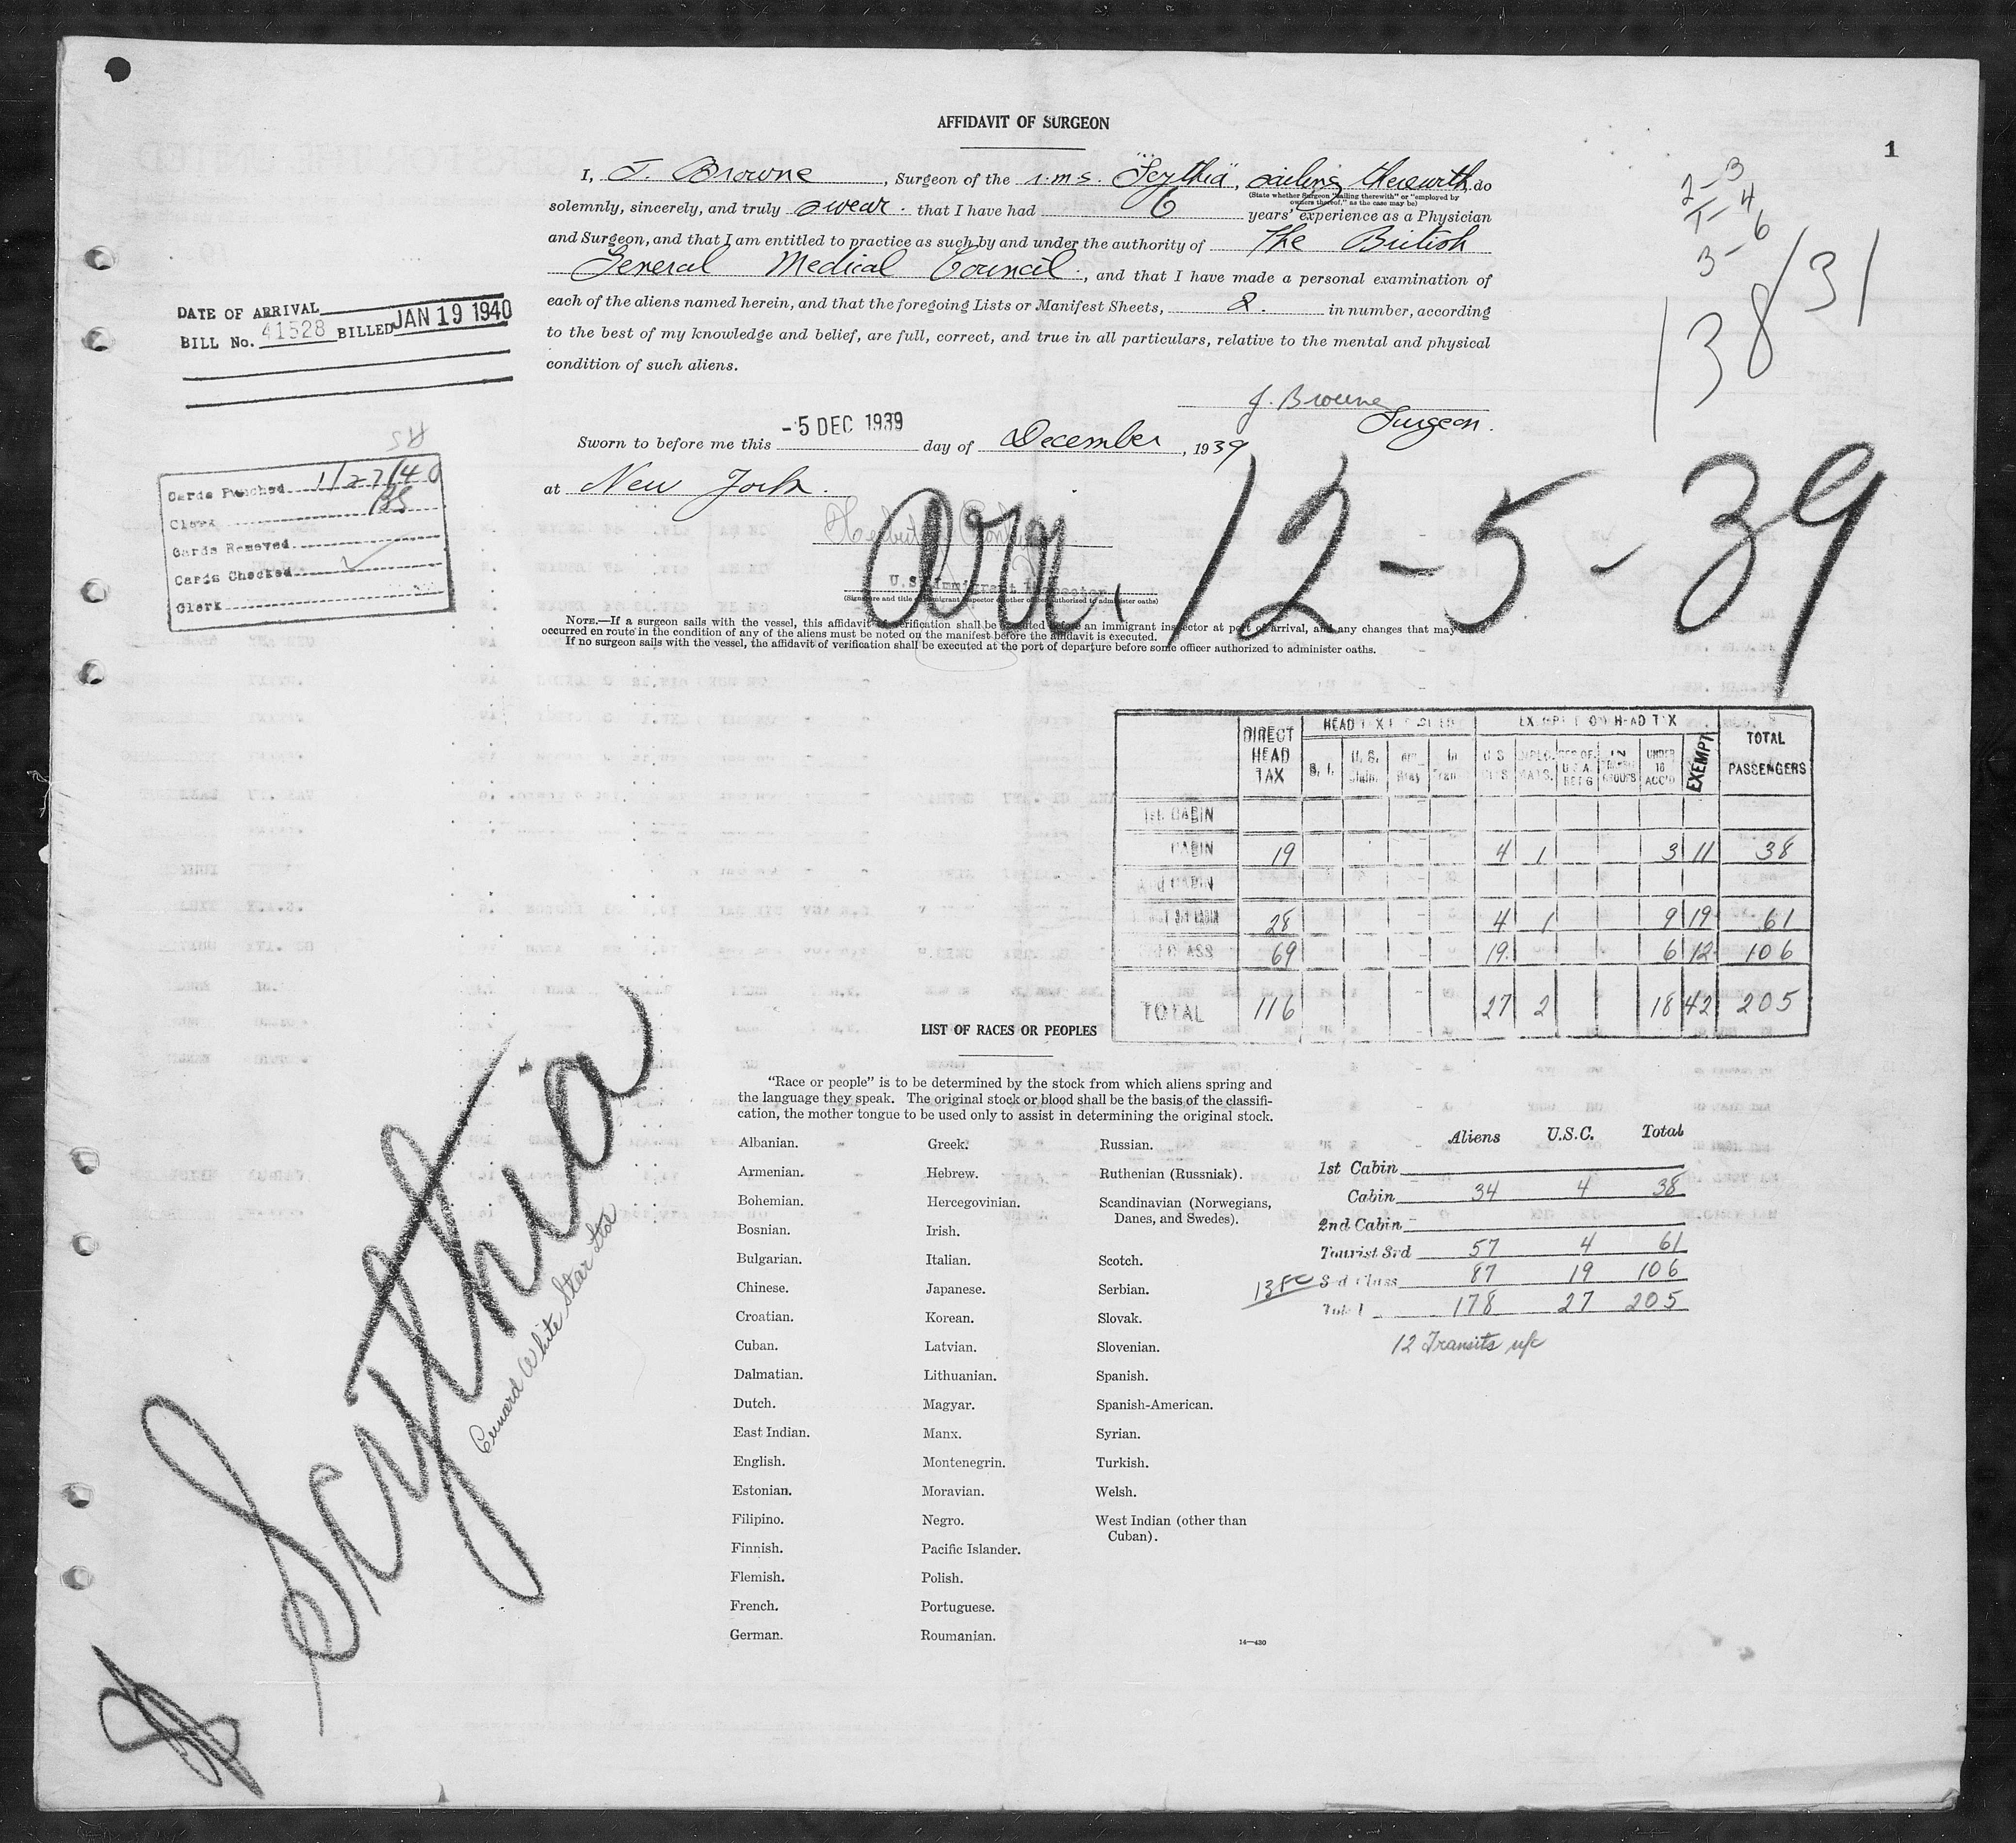 AFFIDAVIT OF SURGEON
1
I, J. Browne, Surgeon of the r.m.s. "Scythia", sailing therewith, do
(State whether Surgeon "sailing therewith" or "employed by
owners thereof," as the case may be)
solemnly, sincerely, and truly swear. that I have had 6 years' experience as a Physician
and Surgeon, and that I am entitled to practice as such by and under the authority of The British
General Medical Council., and that I have made a personal examination of
each of the aliens named herein, and that the foregoing Lists or Manifest Sheets, 8. in number, according
to the best of my knowledge and belief, are full, correct, and true in all particulars, relative to the mental and physical
condition of such aliens.
J. Browne
Surgeon.
Sworn to before me this -5 DEC 1939 day of December, 1939
at New York.
U.S. Immigrant Inspector
(Signature and title of immigrant inspector or other officer authorized to administer oaths)
NOTE.—If a surgeon sails with the vessel, this affidavit of verification shall be executed before an immigrant inspector at port of arrival, and any changes that may have
occurred en route in the condition of any of the aliens must be noted on the manifest before the affidavit is executed.
If no surgeon sails with the vessel, the affidavit of verification shall be executed at the port of departure before some officer authorized to administer oaths.
2-3
1-4
3-6
138/31
DATE OF ARRIVAL
BILL No. 41528 BILLED JAN 19 1940
Cards Punched 1/27/40
Clerk BS
Cards Removed
Cards Checked ✓
Clerk
arr. 12-5-39
DIRECT HEAD TAX
EXEMPT
TOTAL PASSENGERS
1st CABIN
CABIN 19 4 1 3 11 38
2nd CABIN
28 4 1 9 19 61
69 19 6 12 106
TOTAL 116 27 2 18 42 205
LIST OF RACES OR PEOPLES
"Race or people" is to be determined by the stock from which aliens spring and
the language they speak. The original stock or blood shall be the basis of the classifi-
cation, the mother tongue to be used only to assist in determining the original stock.
Albanian.
Armenian.
Bohemian.
Bosnian.
Bulgarian.
Chinese.
Croatian.
Cuban.
Dalmatian.
Dutch.
East Indian.
English.
Estonian.
Filipino.
Finnish.
Flemish.
French.
German.
Greek.
Hebrew.
Hercegovinian.
Irish.
Italian.
Japanese.
Korean.
Latvian.
Lithuanian.
Magyar.
Manx.
Montenegrin.
Moravian.
Negro.
Pacific Islander.
Polish.
Portuguese.
Roumanian.
Russian.
Ruthenian (Russniak).
Scandinavian (Norwegians,
Danes, and Swedes).
Scotch.
Serbian.
Slovak.
Slovenian.
Spanish.
Spanish-American.
Syrian.
Turkish.
Welsh.
West Indian (other than
Cuban).
14—430
Aliens U.S.C. Total
1st Cabin
Cabin 34 4 38
2nd Cabin
Tourist 3rd 57 4 61
3rd Class 87 19 106
Total 178 27 205
12 Transits
Scythia
Cunard White Star Ltd